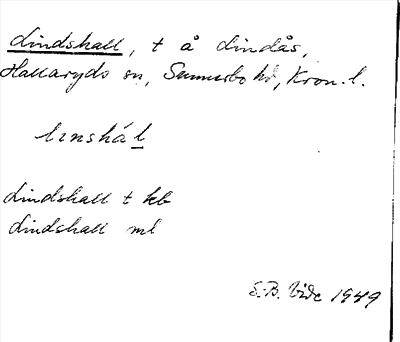 Lindshall, t å Lindås,
Hallaryds sn, Sunnerbo hd, Kron. l.
lınshál
Lindshall t kb
Lindshall ml
S.-B. Vide 1949